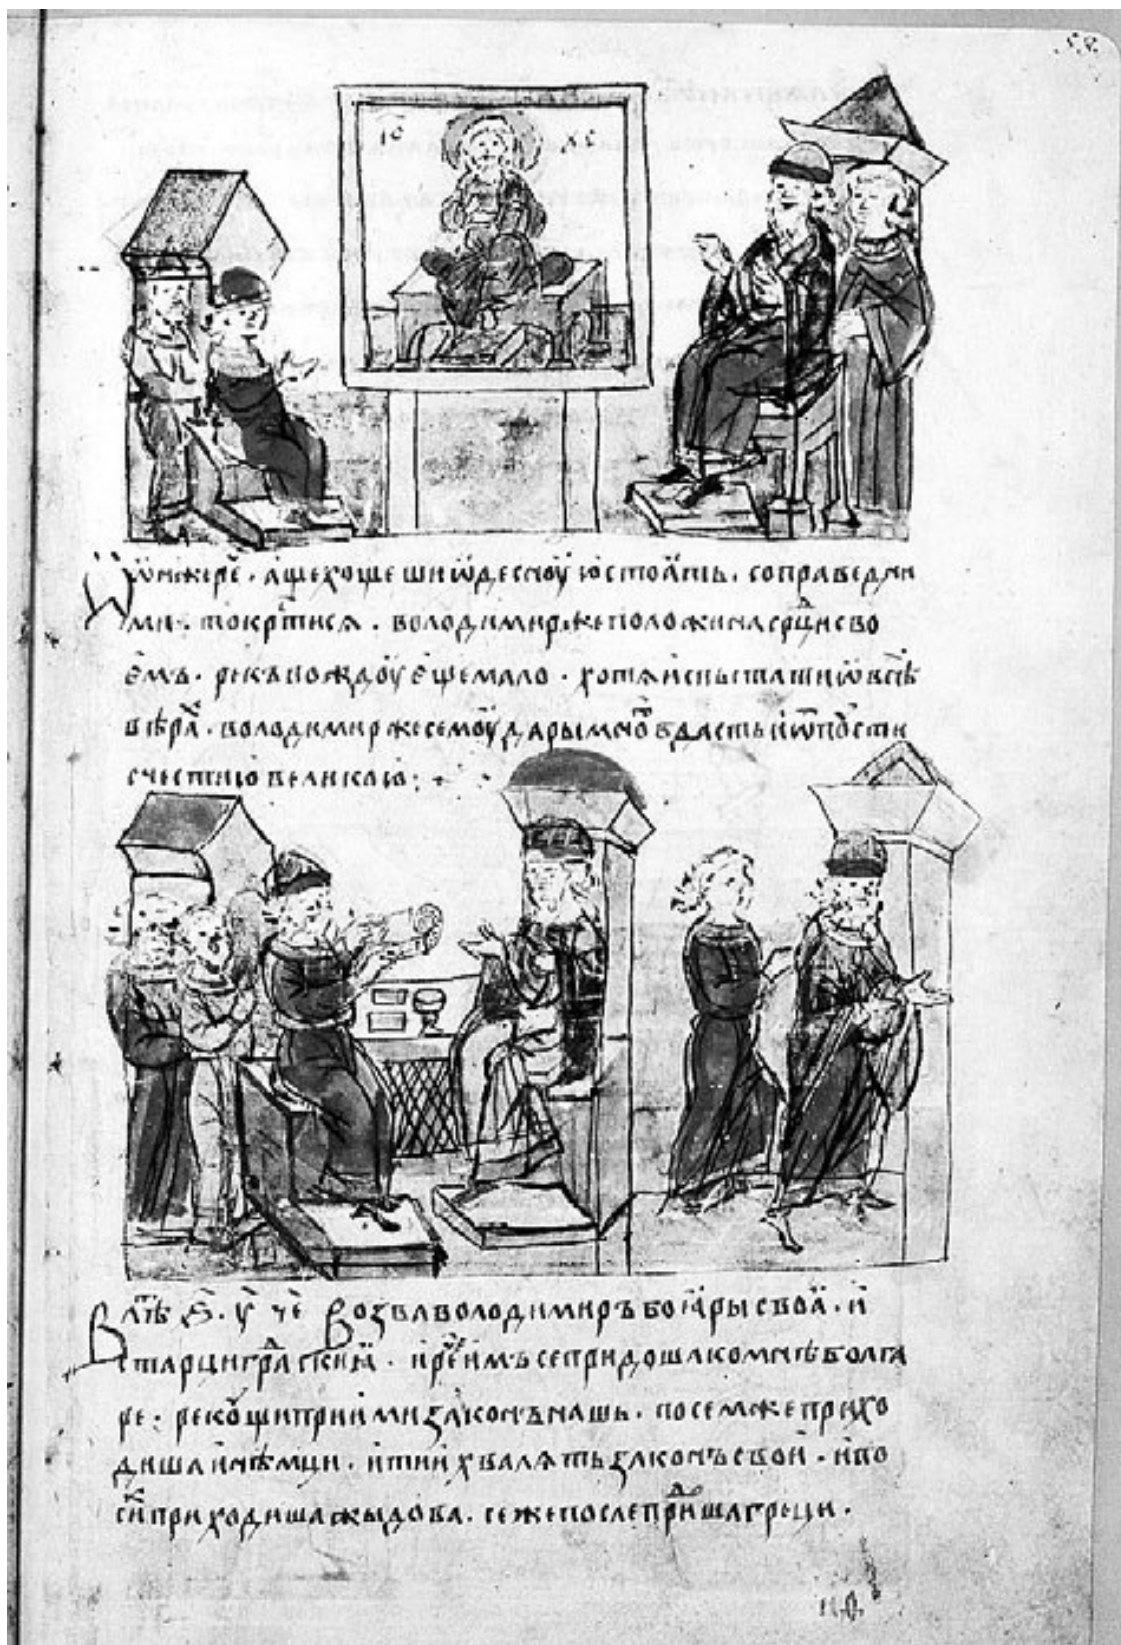 58
ІС ХС
Ѡ҆нжере҇ · аще хощеши ѡдесноую стоꙗть · со праведни
ми · то крⷭ҇тисѧ · володимиръ же положи на срⷣци сво
емъ · рекъ пождоу еще мало · хотѧ испытати ѡ всѣ
вѣраⷯ · володимиръ же семоу дары мноⷢ҇ вдасть и ѿпоусти
с честию великою ⁘
В лⷮѣ ҂ѕ҃ · у҃ ч҃е Возва володимиръ боꙗры своꙗ · и
старци граⷣскиꙗ · и реⷱ҇ имъ се придоша ко мнѣ болга
ре · рекоуще приими законъ нашь · посемже прихо
диша и нѣмци · и тии хвалѧть законъ свои · и по
сиⷯ приходиша жыдова · се же послѣ приⷣоша грѣци ·